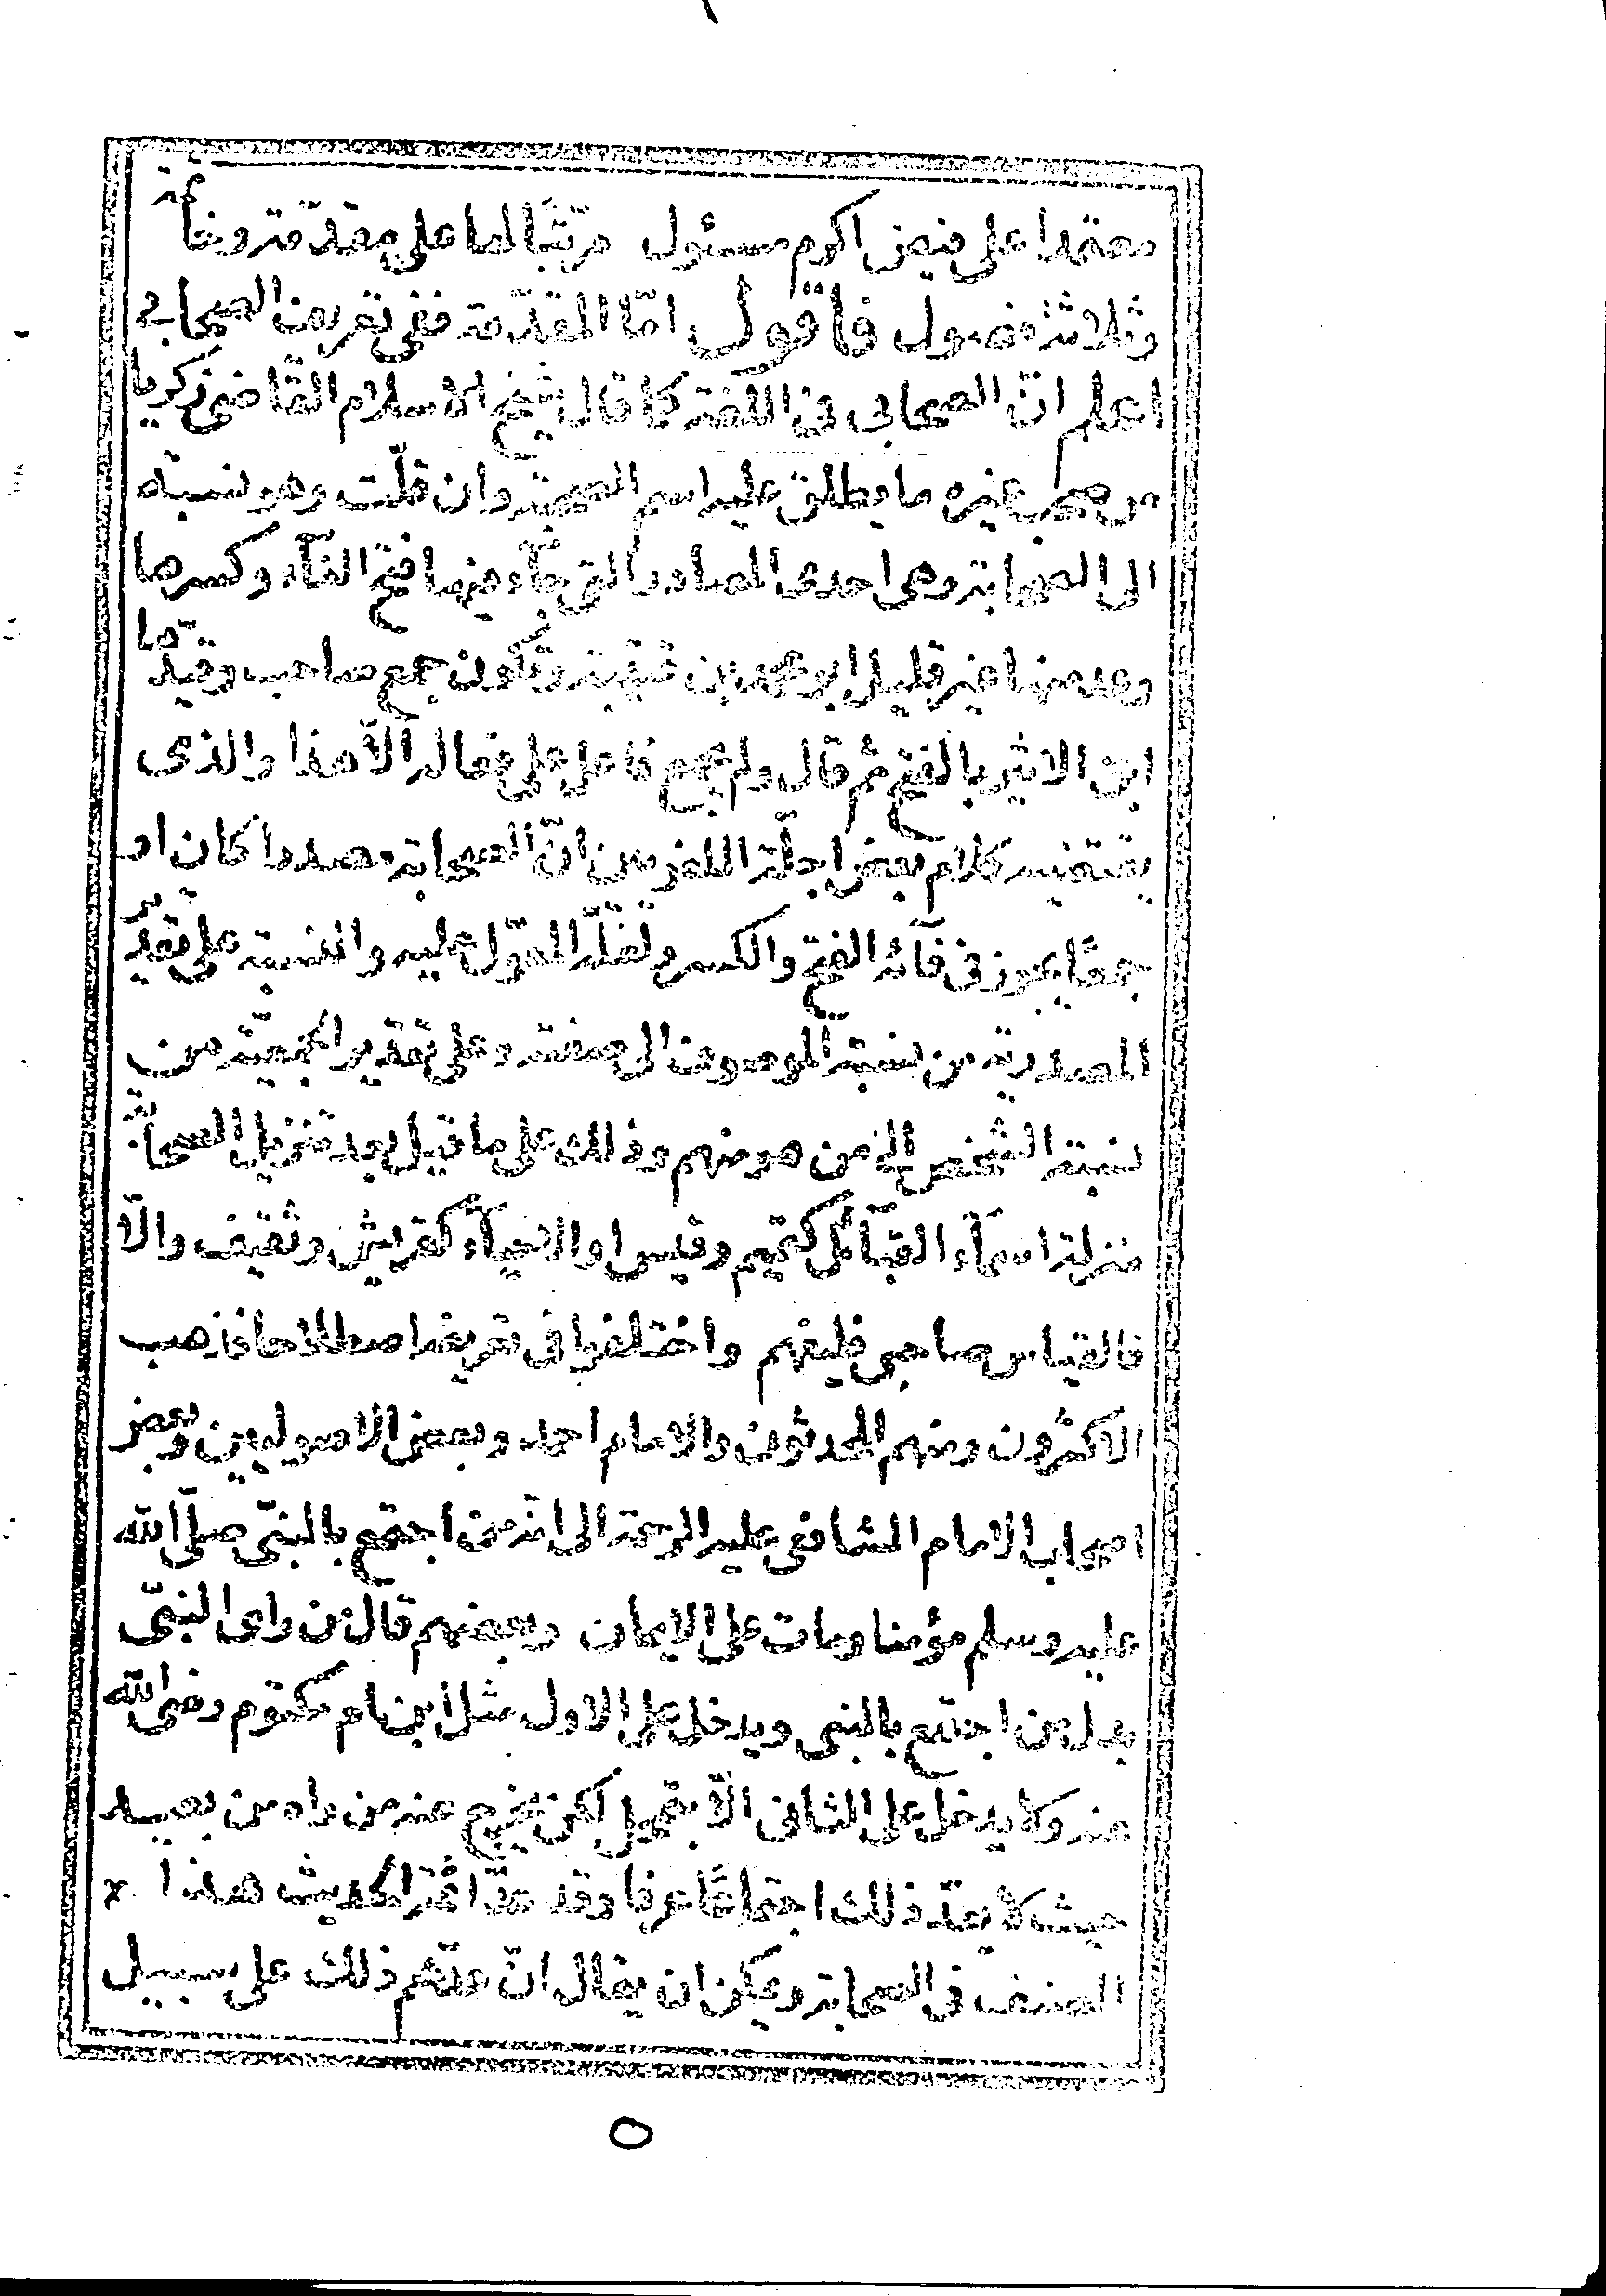 معتمدا على فيض اكرم مسئول مرتبًا لها على مقدّمة وخاتمة
وثلاثة فصول فأقول امّا المقدّمة ففى تعريف الصحابي
اعلم انّ الصحابى فى اللغة كما قال شيخ الاسلام القاضى زكريا
من صحب غيره ما يطلق عليه اسم الصحبة وان قلّت وهو نسبته
الى الصحابة وهى احدى المصادر التى جآء فيها فتح الفآء وكسرها
وعد منها غير قليل ابو محمد بن قتيبة وتكون جمع صاحب وقيدها
ابن الاثير بالفتح ثم قال ولم يجمع فاعل على فعالة الّا هذا والذى
يقتضيه كلام بعض اجلّة اللغويين انّ الصحابة مصدرا كان او
جمعًا يجوز فى فآئه الفتح والكسر ولعلّه المعوّل عليه والنسبة على تقدير
المصدرية من نسبة الموصوف الى صفته وعلى تقدير الجمعيّة من
نسبة الشخص الى من هو منهم وذلك على ما قيل بعد تنزيل الصحابة
منزلة اسمآء القبآئل كتميم وقيس او الاحيآء كقريش وثقيف والّا
فالقياس صاحبى فليفهم واختلفوا فى تعريفه اصطلاحا فذهب
الاكثرون ومنهم المحدثون والامام احمد وبعض الاصوليين وبعض
اصحاب الامام الشافعى عليه الرحمة الى انّه من اجتمع بالنبىّ صلى الله
عليه وسلم مؤمنا ومات على الايمان وبعضهم قال من راى النبىّ
بدل من اجتمع بالنبى ويدخل على الاول مثل ابن ام مكتوم رضى الله
عنه ولا يدخل على الثانى الّا بتمحل لكن يخرج عنه من راه من بعيد
حيث لا يعدّ ذلك اجتماعًا عرفا وقد عدّ ائمة الحديث هذا
الصنف فى الصحابة ويمكن ان يقال انّ عدّهم ذلك على سبيل
٥